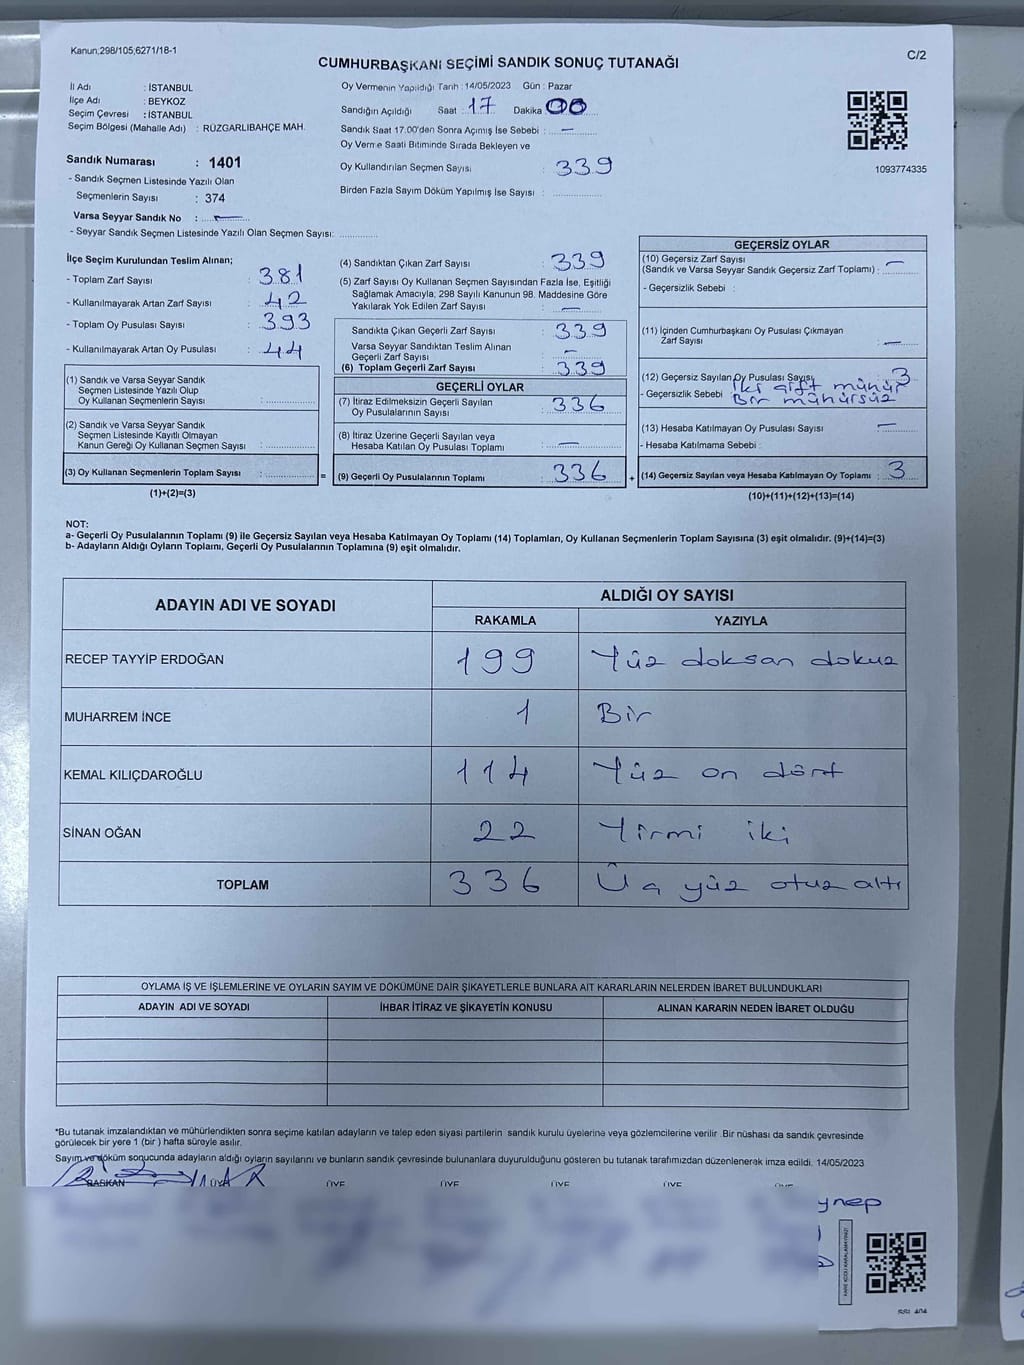 Kanun,298/105,6271/18-1
C/2
CUMHURBAŞKANI SEÇİMİ SANDIK SONUÇ TUTANAĞI
İl Adı : İSTANBUL
İlçe Adı : BEYKOZ
Seçim Çevresi : İSTANBUL
Seçim Bölgesi (Mahalle Adı) : RÜZGARLIBAHÇE MAH.
Sandık Numarası : 1401
- Sandık Seçmen Listesinde Yazılı Olan
Seçmenlerin Sayısı : 374
Varsa Seyyar Sandık No : —
- Seyyar Sandık Seçmen Listesinde Yazılı Olan Seçmen Sayısı:
Oy Vermenin Yapıldığı Tarih : 14/05/2023 Gün : Pazar
Sandığın Açıldığı Saat 17 Dakika 00
Sandık Saat 17.00'den Sonra Açımış İse Sebebi : —
Oy Verme Saati Bitiminde Sırada Bekleyen ve
Oy Kullandırılan Seçmen Sayısı : 339
Birden Fazla Sayım Döküm Yapılmış İse Sayısı :
1093774335
İlçe Seçim Kurulundan Teslim Alınan;
- Toplam Zarf Sayısı : 381
- Kullanılmayarak Artan Zarf Sayısı : 42
- Toplam Oy Pusulası Sayısı : 393
- Kullanılmayarak Artan Oy Pusulası : 44
(1) Sandık ve Varsa Seyyar Sandık
Seçmen Listesinde Yazılı Olup
Oy Kullanan Seçmenlerin Sayısı :
(2) Sandık ve Varsa Seyyar Sandık
Seçmen Listesinde Kayıtlı Olmayan
Kanun Gereği Oy Kullanan Seçmen Sayısı :
(3) Oy Kullanan Seçmenlerin Toplam Sayısı : =
(1)+(2)=(3)
(4) Sandıktan Çıkan Zarf Sayısı : 339
(5) Zarf Sayısı Oy Kullanan Seçmen Sayısından Fazla İse, Eşitliği
Sağlamak Amacıyla, 298 Sayılı Kanunun 98. Maddesine Göre
Yakılarak Yok Edilen Zarf Sayısı : —
Sandıkta Çıkan Geçerli Zarf Sayısı : 339
Varsa Seyyar Sandıktan Teslim Alınan
Geçerli Zarf Sayısı : —
(6) Toplam Geçerli Zarf Sayısı : 339
GEÇERLİ OYLAR
(7) İtiraz Edilmeksizin Geçerli Sayılan
Oy Pusulalarının Sayısı : 336
(8) İtiraz Üzerine Geçerli Sayılan veya
Hesaba Katılan Oy Pusulası Toplamı : —
(9) Geçerli Oy Pusulalarının Toplamı : 336 +
GEÇERSİZ OYLAR
(10) Geçersiz Zarf Sayısı
(Sandık ve Varsa Seyyar Sandık Geçersiz Zarf Toplamı) : —
- Geçersizlik Sebebi :
(11) İçinden Cumhurbaşkanı Oy Pusulası Çıkmayan
Zarf Sayısı : —
(12) Geçersiz Sayılan Oy Pusulası Sayısı 3
İki çift mühür
- Geçersizlik Sebebi Bir mühürsüz
(13) Hesaba Katılmayan Oy Pusulası Sayısı : —
- Hesaba Katılmama Sebebi :
(14) Geçersiz Sayılan veya Hesaba Katılmayan Oy Toplamı : 3
(10)+(11)+(12)+(13)=(14)
NOT:
a- Geçerli Oy Pusulalarının Toplamı (9) ile Geçersiz Sayılan veya Hesaba Katılmayan Oy Toplamı (14) Toplamları, Oy Kullanan Seçmenlerin Toplam Sayısına (3) eşit olmalıdır. (9)+(14)=(3)
b- Adayların Aldığı Oyların Toplamı, Geçerli Oy Pusulalarının Toplamına (9) eşit olmalıdır.
ADAYIN ADI VE SOYADI
ALDIĞI OY SAYISI
RAKAMLA YAZIYLA
RECEP TAYYİP ERDOĞAN 199 Yüz doksan dokuz
MUHARREM İNCE 1 Bir
KEMAL KILIÇDAROĞLU 114 Yüz on dört
SİNAN OĞAN 22 Yirmi iki
TOPLAM 336 Üç yüz otuz altı
OYLAMA İŞ VE İŞLEMLERİNE VE OYLARIN SAYIM VE DÖKÜMÜNE DAİR ŞİKAYETLERLE BUNLARA AİT KARARLARIN NELERDEN İBARET BULUNDUKLARI
ADAYIN ADI VE SOYADI İHBAR İTİRAZ VE ŞİKAYETİN KONUSU ALINAN KARARIN NEDEN İBARET OLDUĞU
*Bu tutanak imzalandıktan ve mühürlendikten sonra seçime katılan adayların ve talep eden siyasi partilerin sandık kurulu üyelerine veya gözlemcilerine verilir .Bir nüshası da sandık çevresinde
görülecek bir yere 1 (bir ) hafta süreyle asılır.
Sayım ve döküm sonucunda adayların aldığı oyların sayılarını ve bunların sandık çevresinde bulunanlara duyurulduğunu gösteren bu tutanak tarafımızdan düzenlenerek imza edildi. 14/05/2023
BAŞKAN ÜYE ÜYE ÜYE ÜYE ÜYE
ynep